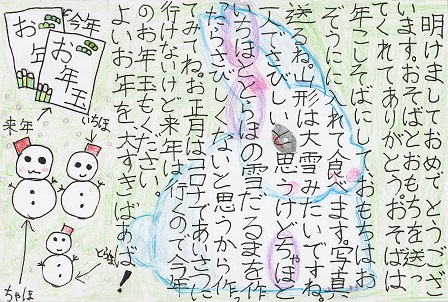 明けましておめでとうござ
います。おそばとおもちを送っ
てくれてありがとう。おそばは
年こしそばにして、おもちはお
ぞうにに入れて食べます。写真
送るね。山形は大雪みたいですね。
でさびしいと思うけどちゃほと
いちほととらほの雪だるまを作
ったらさびしくないと思うから作っ
てみてね。お正月はコロナであいさつに
行けないけど来年は行くので今年
のお年玉もください。
よいお年を、大すきばあば!
今年
お年玉
お年
来年
いちほ
ちゃほ